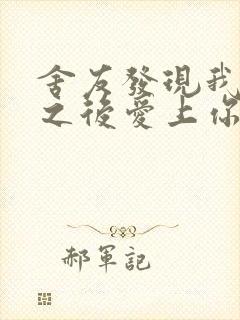 舍友發現我
之後愛上你
郝軍記